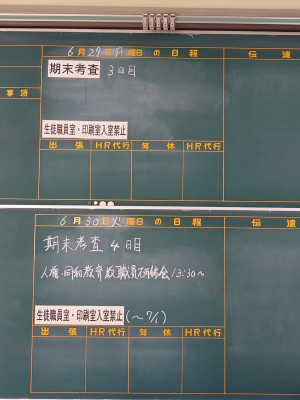 6月29日月曜日の日程 伝達
期末考査 3日目
事項
生徒職員室・印刷室入室禁止
出張 HR代行 年休 HR代行
6月30日火曜日の日程 伝達
期末考査 4日目
人権・同和教育 職員研修会 13:30～
生徒職員室・印刷室入室禁止 (～7/1)
出張 HR代行 年休 HR代行